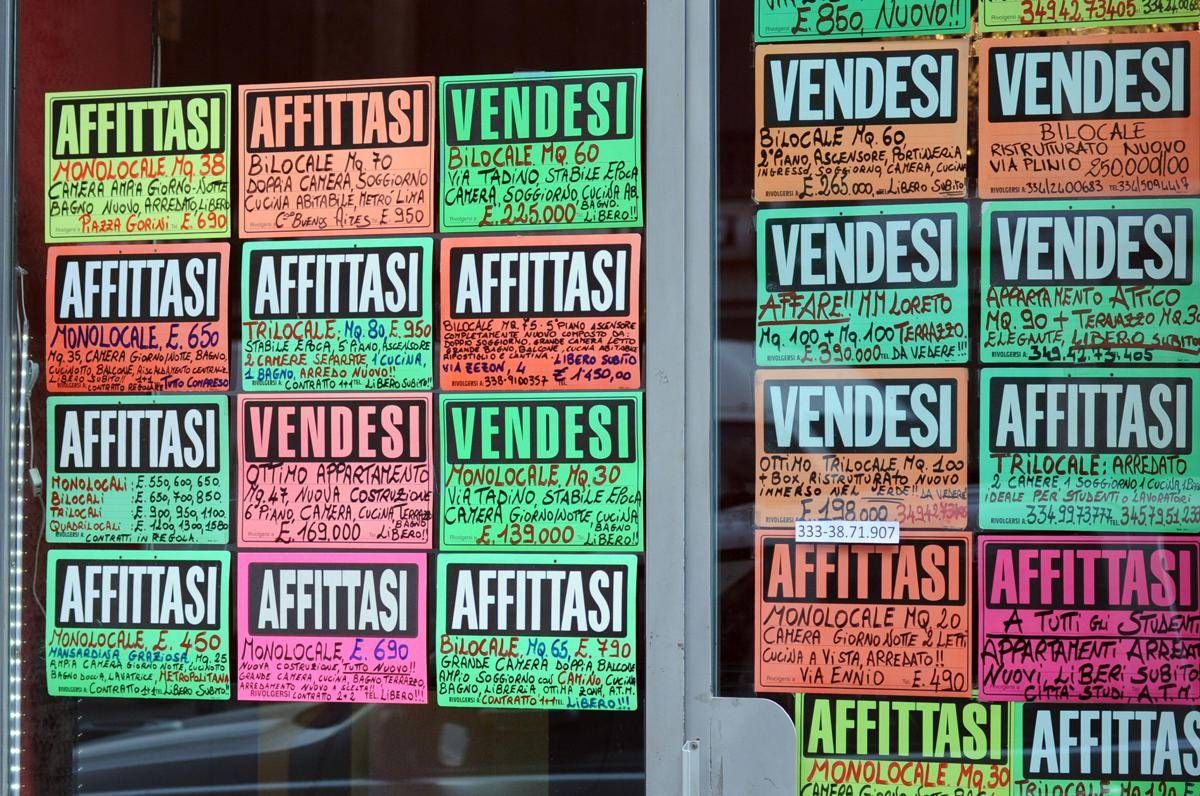 AFFITTASI
MONOLOCALE Mq. 38
CAMERA AMPIA GIORNO-NOTTE
BAGNO NUOVO, ARREDATO, LIBERO
PIAZZA GORINI E. 690
AFFITTASI
BILOCALE Mq. 70
DOPPIA CAMERA, SOGGIORNO
CUCINA ABITABILE, METRO' LIMA
C.so BUENOS AIRES E 950
VENDESI
BILOCALE MQ. 60
VIA TADINO, STABILE EPOCA
CAMERA, SOGGIORNO, CUCINA AB,
E. 225.000 BAGNO. LIBERO!!
AFFITTASI
MONOLOCALE, E. 650
MQ. 35, CAMERA GIORNO/NOTTE, BAGNO,
CUCINOTTO, BALCONE, RISCALDAMENTO CENTRALE
LIBERO SUBITO!! 1+1 TUTTO COMPRESO
CONTRATTO REGOLARE
AFFITTASI
TRILOCALE, MQ. 80, E. 950
STABILE EPOCA, 5° PIANO, ASCENSORE
2 CAMERE SEPARATE, 1 CUCINA,
1 BAGNO, ARREDO NUOVO!!
CONTRATTO 1+1 LIBERO SUBITO!!
AFFITTASI
BILOCALE MQ. 75 - 5° PIANO ASCENSORE
COMPLETAMENTE NUOVO COMPOSTO DA
DOPPIO SOGGIORNO, GRANDE CAMERA LETTO
GRANDE BAGNO, BALCONE, CUCINA ABITABILE
RIPOSTIGLIO E CANTINA - LIBERO SUBITO
VIA ZEZON, 4 E 1150,00
RIVOLGERSI A 338-9100357
AFFITTASI
MONOLOCALI: E. 550, 600, 650
BILOCALI: E. 650, 700, 850
TRILOCALI: E. 900, 950, 1100
QUADRILOCALI: E. 1200, 1300, 1580
CONTRATTI IN REGOLA.
VENDESI
OTTIMO APPARTAMENTO
Mq. 47, NUOVA COSTRUZIONE
6° PIANO, CAMERA, CUCINA TERRAZZO
E. 169.000 BAGNO LIBERO!!
VENDESI
MONOLOCALE, MQ. 30
VIA TADINO, STABILE EPOCA
CAMERA GIORNO/NOTTE, CUCINA
E. 139.000 BAGNO LIBERO!!
AFFITTASI
MONOLOCALE E. 450
MANSARDINA GRAZIOSA MQ. 25
AMPIA CAMERA GIORNO NOTTE, CUCINOTTO
BAGNO DOCCIA, LAVATRICE, METROPOLITANA
CONTRATTO 1+1 LIBERO SUBITO!
AFFITTASI
MONOLOCALE, E. 690
NUOVA COSTRUZIONE, TUTTO NUOVO!!
GRANDE CAMERA, CUCINA, BAGNO, TERRAZZO,
ARREDAMENTO NUOVO A SCELTA!!
RIVOLGERSI CONTRATTO 2+2 TEL. LIBERO!!!
AFFITTASI
BILOCALE, MQ 65, E. 790
GRANDE CAMERA DOPPIA, BALCONE
AMPIO SOGGIORNO CON CAMINO, CUCINA
BAGNO, LIBRERIA, OTTIMA ZONA, A.T.M.
RIVOLGERSI CONTRATTO 1+1 TEL. LIBERO!!!
E. 850, NUOVO!!
3494273405
VENDESI
BILOCALE MQ. 60
2° PIANO, ASCENSORE, PORTINERIA
INGRESSO, SOGGIORNO, CAMERA, CUCINA
E. 265.000, LIBERO SUBITO
VENDESI
BILOCALE
RISTRUTTURATO NUOVO
VIA PLINIO 250000,00
RIVOLGERSI A 3342400683
VENDESI
AFFARE!! MM LORETO
Mq. 100 + Mq. 100 TERRAZZO
E. 390.000 DA VEDERE!!
VENDESI
APPARTAMENTO ATTICO
MQ. 90 + TERRAZZO MQ. 3
ELEGANTE, LIBERO SUBITO
349.42.73.405
VENDESI
OTTIMO TRILOCALE, MQ. 100
+ BOX, RISTRUTTURATO NUOVO
IMMERSO NEL VERDE!! DA VEDERE
E 198.000
333-38.71.907
AFFITTASI
TRILOCALE: ARREDATO
2 CAMERE 1 SOGGIORNO 1 CUCINA, 1 BAGNO
IDEALE PER STUDENTI O LAVORATORI
RIVOLGERSI A 3349973777
AFFITTASI
MONOLOCALE MQ 20
CAMERA GIORNO NOTTE 2 LETTI
CUCINA A VISTA, ARREDATO!!
VIA ENNIO E. 490
AFFITTASI
A TUTTI GLI STUDENTI
APPARTAMENTI ARREDATI
NUOVI, LIBERI SUBITO
CITTA' STUDI, A.T.M.
AFFITTASI
MONOLOCALE MQ. 30
AFFITTASI